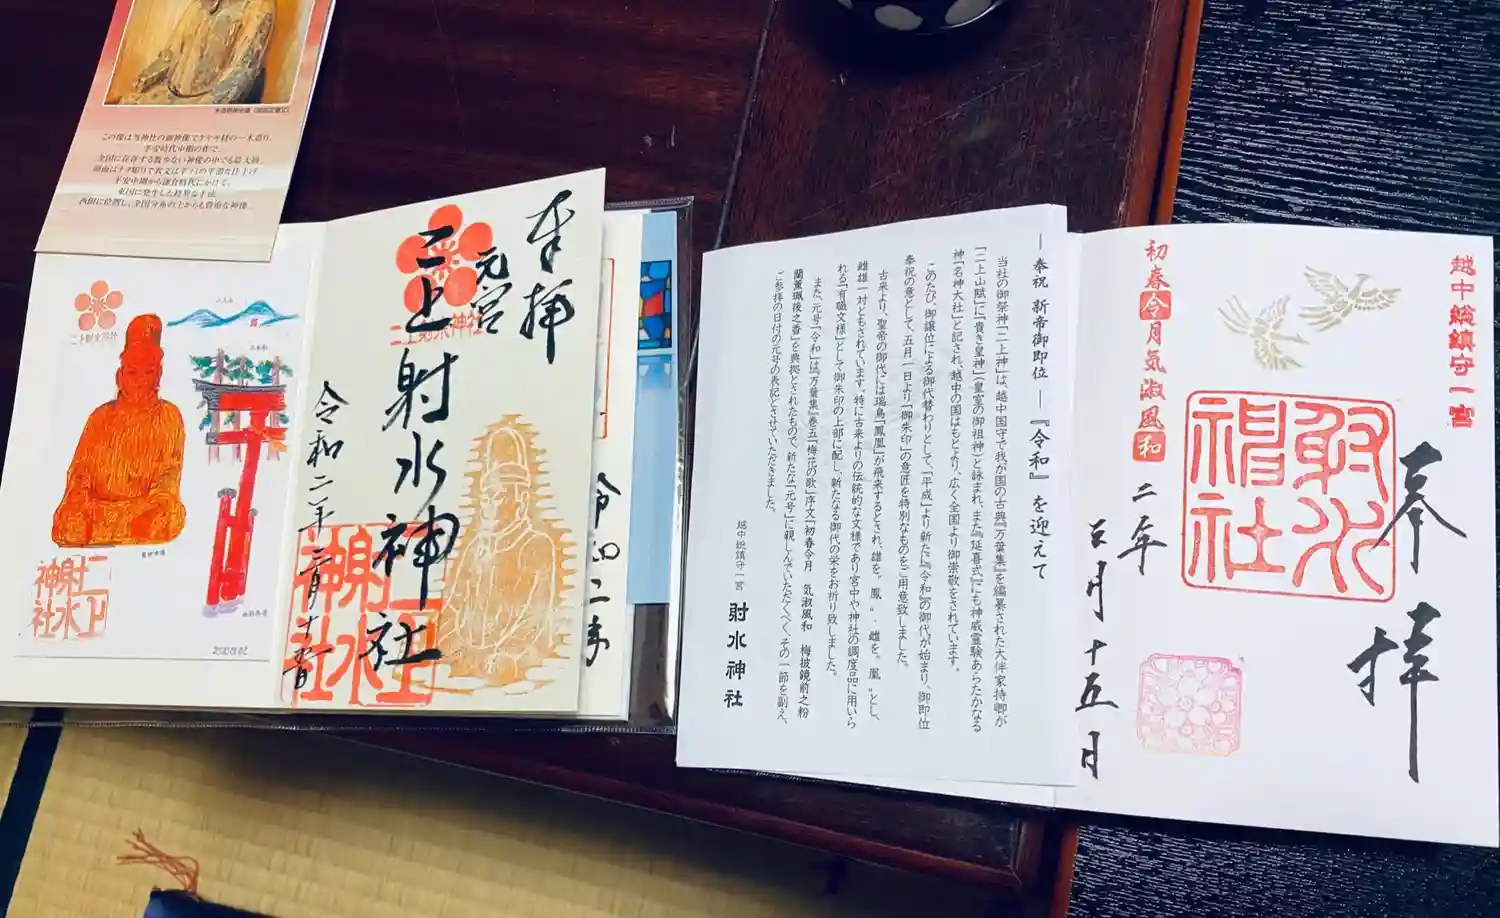 この像は当神社の御神像でケヤキ材の一木造り、
平安時代中期の作で、
全国に存在する数少ない神像の中でも最大級、
平安中期から鎌倉時代にかけて、
東国に発生した特異な手法
二上射水神社
二上
射水
神社
奉拝
元宮
二上射水神社
二上射水神社
令和二年
二上
射水
神社
令和二年
― 奉祝 新帝御即位 ― 『令和』を迎えて
当社の御祭神「二上神」は、越中国守で我が国の古典『万葉集』を編纂された大伴家持卿が
「二上山賦」に「貴き皇神」（皇室の御祖神）と詠まれ、また『延喜式』にも神威霊験あらたかなる
神「名神大社」と記され、越中の国はもとより、広く全国より御崇敬をされています。
このたび、御譲位による御代替わりとして、「平成」より新た『令和』の御代が始まり、御即位
奉祝の意として、五月一日より「御朱印」の意匠を特別なものをご用意致しました。
古来より、聖帝の御代には瑞鳥「鳳凰」が飛来するとされ、雄を〝鳳〟・雌を〝凰〟とし、
雌雄一対ともされています。特に古来よりの伝統的な文様であり宮中や神社の調度品に用いら
れる「有職文様」として御朱印の上部に配し、新たなる御代の栄をお祈り致しました。
また、元号「令和」は『万葉集』巻五「梅花の歌」序文「初春令月 気淑風和 梅披鏡前之粉
蘭薫珮後之香」を典拠とされたもので、新たな「元号」に親しんでいただくべく、その一節を副え、
ご参拝の日付の元号の表記とさせていただきました。
越中総鎮守一宮 射水神社
越中総鎮守一宮
奉拝
射水
神社
初春令月気淑風和
二年
三月十五日